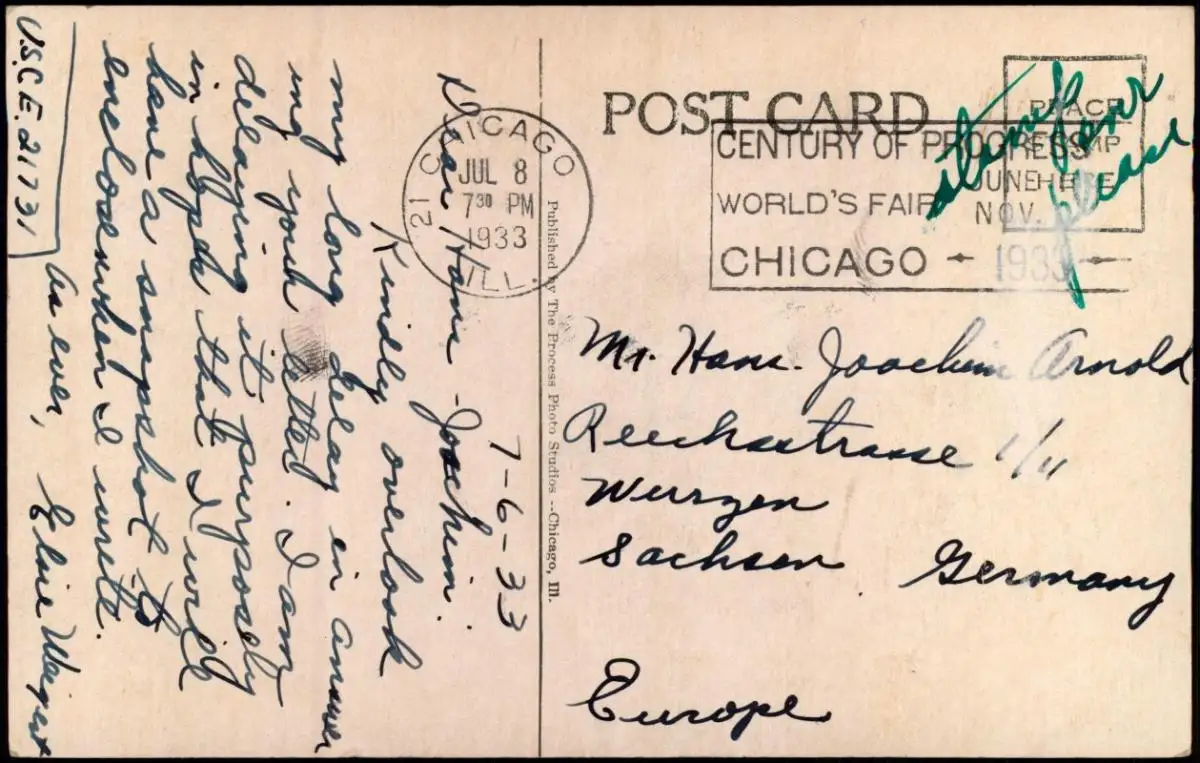 POST CARD
PLACE
STAMP
HERE
CENTURY OF PROGRESS
WORLD'S FAIR
JUNE
NOV.
CHICAGO 1933
CHICAGO
JUL 8
7 30 PM
1933
ILL.
12
stamp
please
7-6-33
Dear Hans-Joachim:
Kindly overlook
my long delay in answer
ing your letter. I am
delaying it purposely
in hopes that I will
have a snapshot to
enclose when I write.
As ever, Elsie
U.S.C.E. 217731
Published by The Process Photo Studios--Chicago, Ill.
Mr. Hans-Joachim Arnold
1/11
Wurzen
Sachsen Germany
Europe